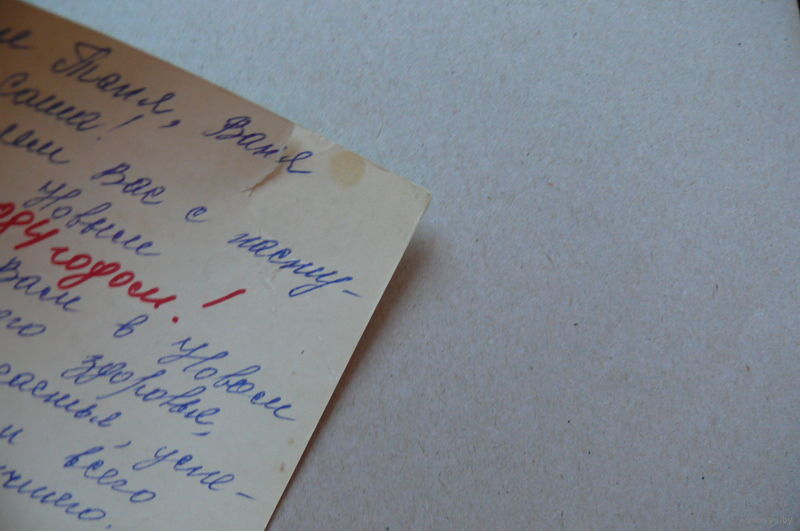 Таня, Ваня
Саша!
Вас с насту-
Новым
годом!
Вам в Новом
его здоровья,
счастья, успе-
и всего
учшего.